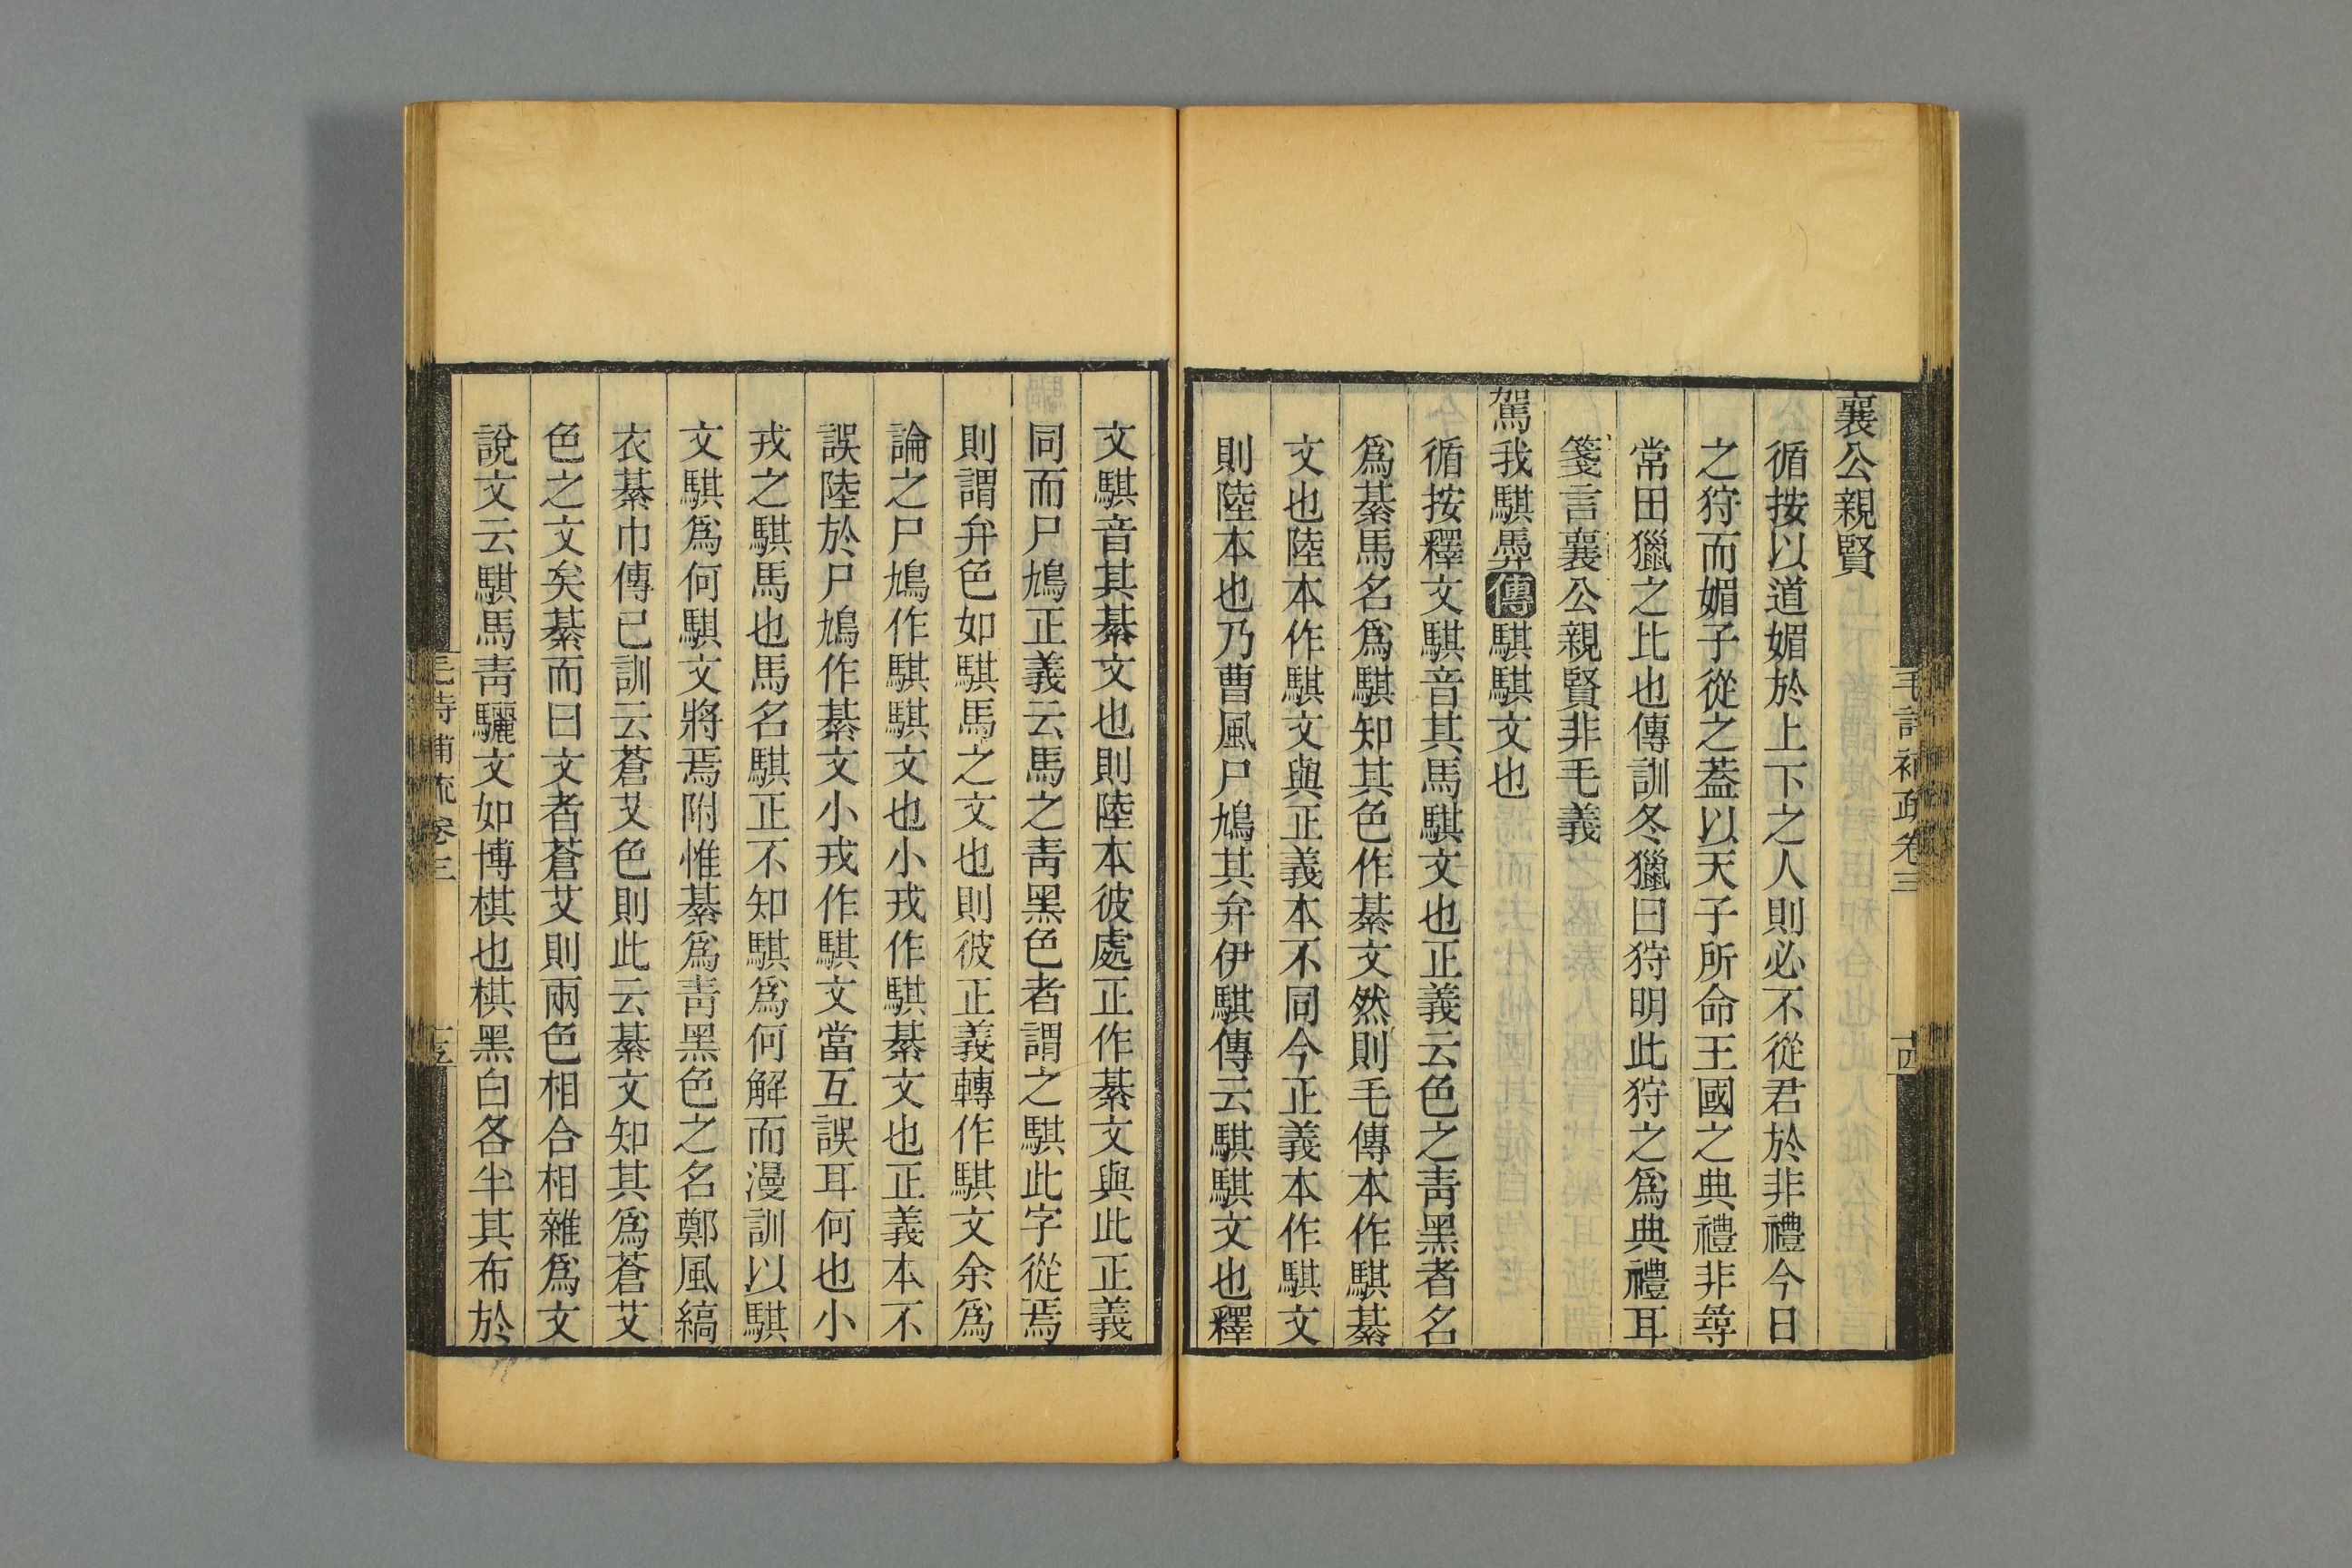 毛詩補疏卷三
十四
襄公親賢
循按以道媚於上下之人則必不從君於非禮今日
之狩而媚子從之蓋以天子所命王國之典禮非尋
常田獵之比也傳訓冬獵曰狩明此狩之爲典禮耳
箋言襄公親賢非毛義
駕我騏馵傳騏騏文也
循按釋文騏音其馬騏文也正義云色之靑黑者名
爲綦馬名爲騏知其色作綦文然則毛傳本作騏綦
文也陸本作騏文與正義本不同今正義本作騏文
則陸本也乃曹風尸鳩其弁伊騏傳云騏騏文也釋
文騏音其綦文也則陸本彼處正作綦文與此正義
同而尸鳩正義云馬之靑黑色者謂之騏此字從焉
則謂弁色如騏馬之文也則彼正義轉作騏文余爲
論之尸鳩作騏騏文也小戎作騏綦文也正義本不
誤陸於尸鳩作綦文小戎作騏文當互誤耳何也小
戎之騏馬也馬名騏正不知騏爲何解而漫訓以騏
文騏爲何騏文將焉附惟綦爲靑黑色之名鄭風縞
衣綦巾傳已訓云蒼艾色則此云綦文知其爲蒼艾
色之文矣綦而曰文者蒼艾則兩色相合相雜爲文
說文云騏馬靑驪文如博棋也棋黑白各半其布於
毛詩補疏卷三
十五